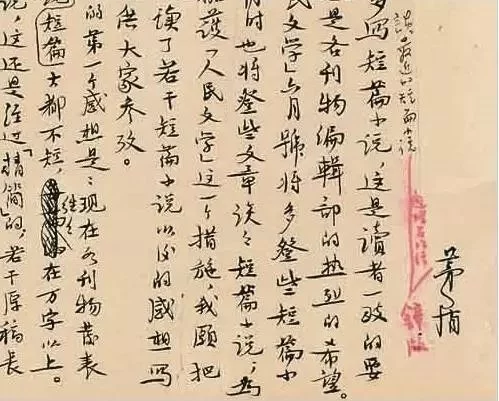 茅盾
談最近的短篇小说
锌版
多写短篇小说,這是讀者一致的要
是各刊物编辑部的热烈的希望。
民文学」六月號将多登些短篇小
时也将登些文章谈々短篇小说,为
護「人民文学」這一个措施,我願把
读了若干短篇小说以后的感想一写
供大家参考。
的第一个感想是:现在各刊物發表
短篇大都不短,往往在万字以上。
说,这还是经过「精简」的,若干原稿長